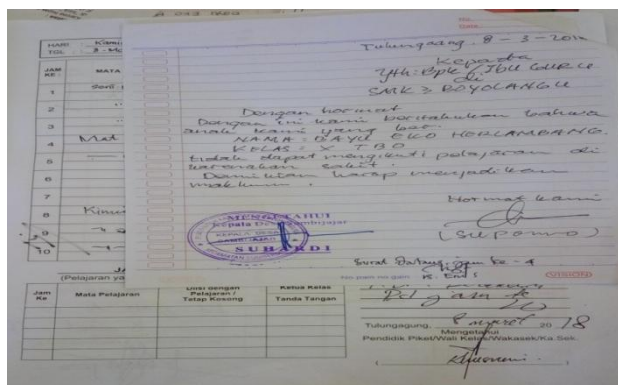 No.
Date.
Tulungagung, 8 - 3 - 2018
Kepada
Yth: Bpk / Ibu GURU
di
SMK 3 BOYOLANGU
Dengan hormat
Dengan ini kami beritahukan bahwa
anak kami yang ber
NAMA : BAYU EKO HERLAMBANG.
KELAS : X TBO
tidak dapat mengikuti pelajaran di
karenakan sakit.
Demikian harap menjadikan
maklum.
Hormat kami
(Supomo)
MENGETAHUI
Kepala Desa
KEPALA DESA
SUHARDI
Surat Datang jam ke - 4
No pain no gain
VISION
HARI :
TGL :
JAM KE :
MATA
1
2
3
4
5
6
7
8
9
10
Mat
(Pelajaran ya
Jam Ke
Mata Pelajaran
Diisi dengan Pelajaran / Tetap Kosong
Ketua Kelas
Tanda Tangan
Tulungagung, 8 Maret 2018
Mengetahui
Pendidik Piket/Wali Kelas/Wakasek/Ka.Sek.